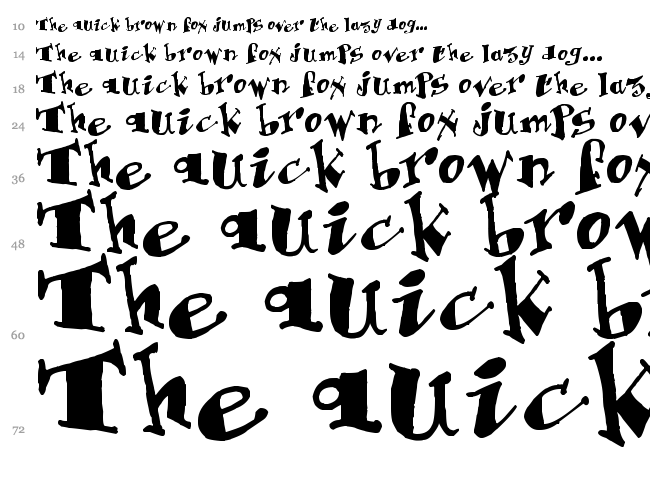 10 The quick brown fox jumps over the lazy dog...
14 The quick brown fox jumps over the lazy dog...
18 The quick brown fox jumps over the lazy
24 The quick brown fox jumps ov
36 The quick brown fox
48 The quick brow
60 The quick b
72 The quick